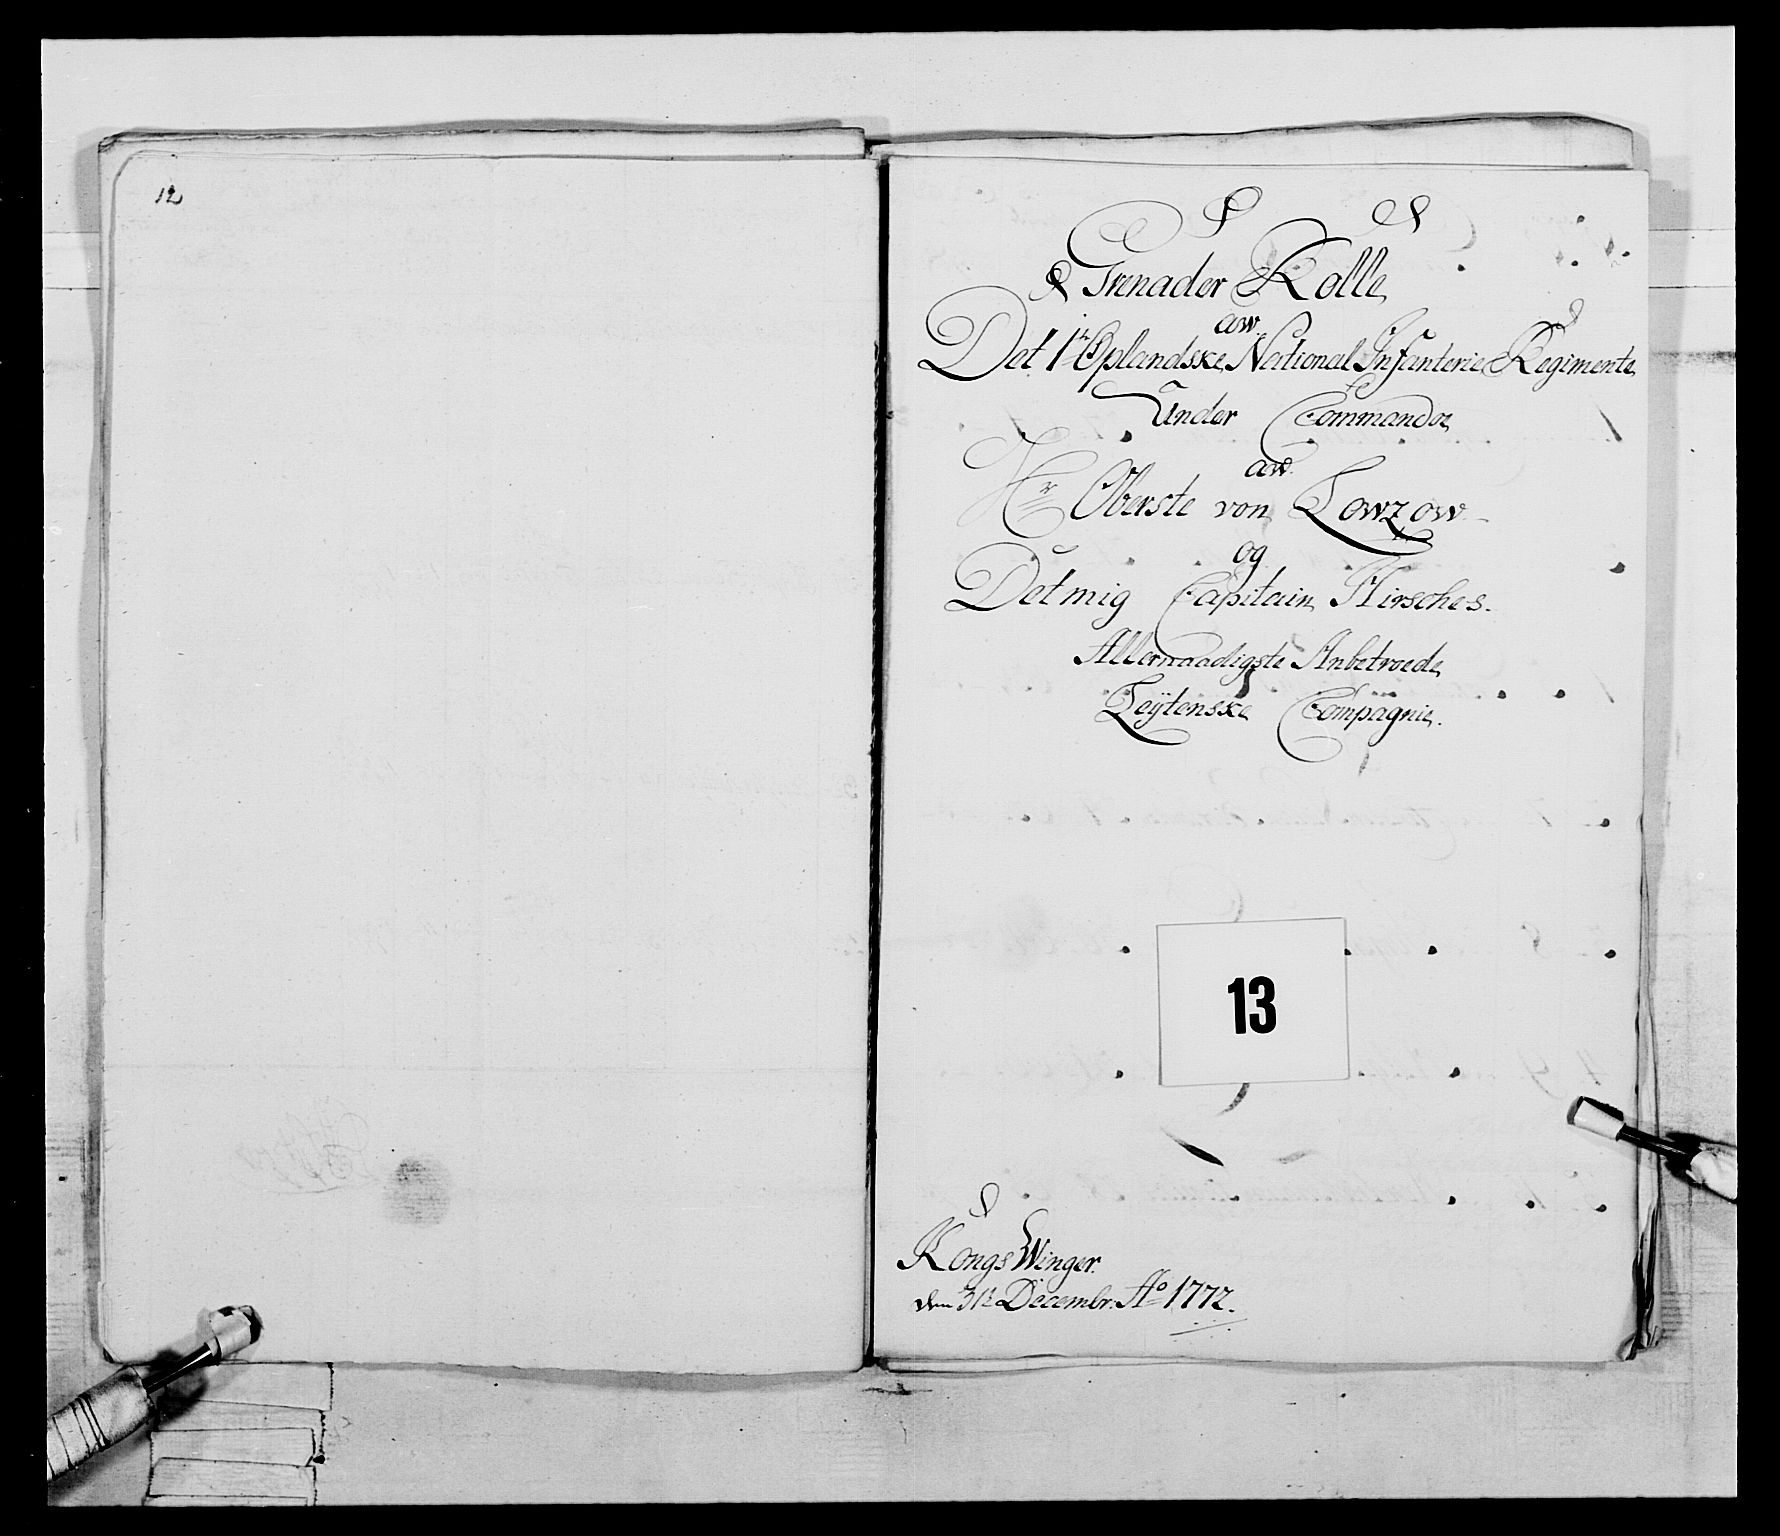 12
Grenader Rolle
aw
Det 1te Oplandske National Infanterie Regimente
Under Commando
aw
Hr Oberste von Lowzow
og
Det mig Capitain Hirsches.
Allernaadigste Anbetroede
Leÿtenske Compagnie.
13
KongsWinger.
dem 31te Decembr. Ao 1772.